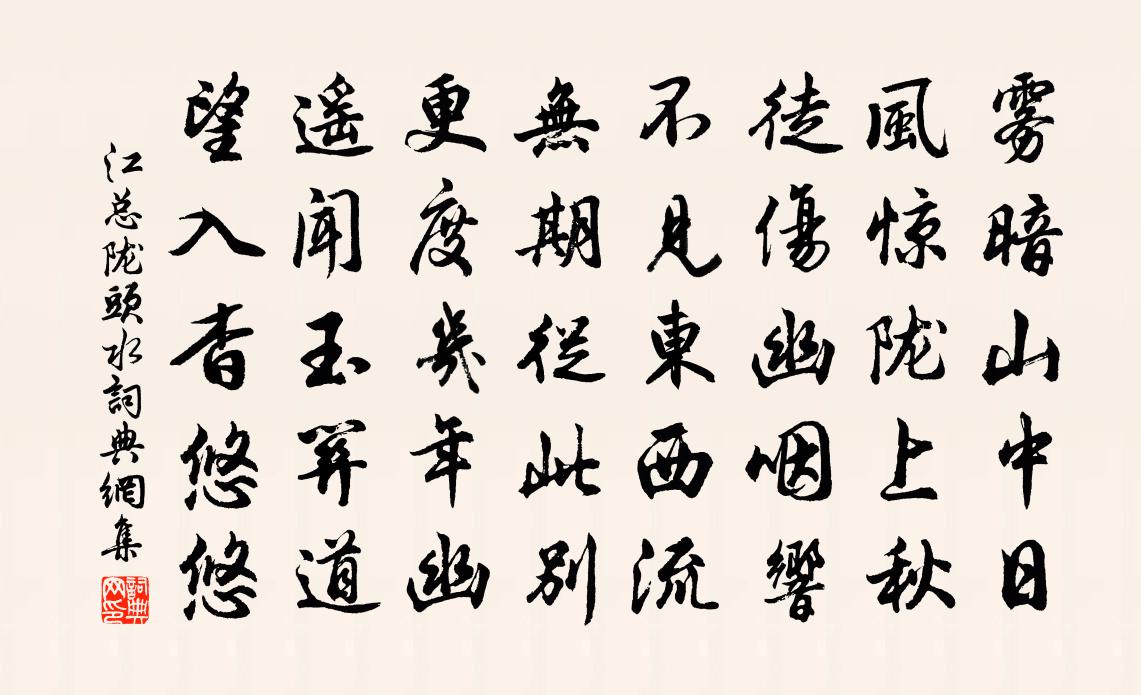 雾暗山中日
風惊陇上秋
徒傷幽咽響
不見東西流
無期從此別
更度幾年幽
遥闻玉關道
望入杳悠悠
江总陇頭水詞典網集